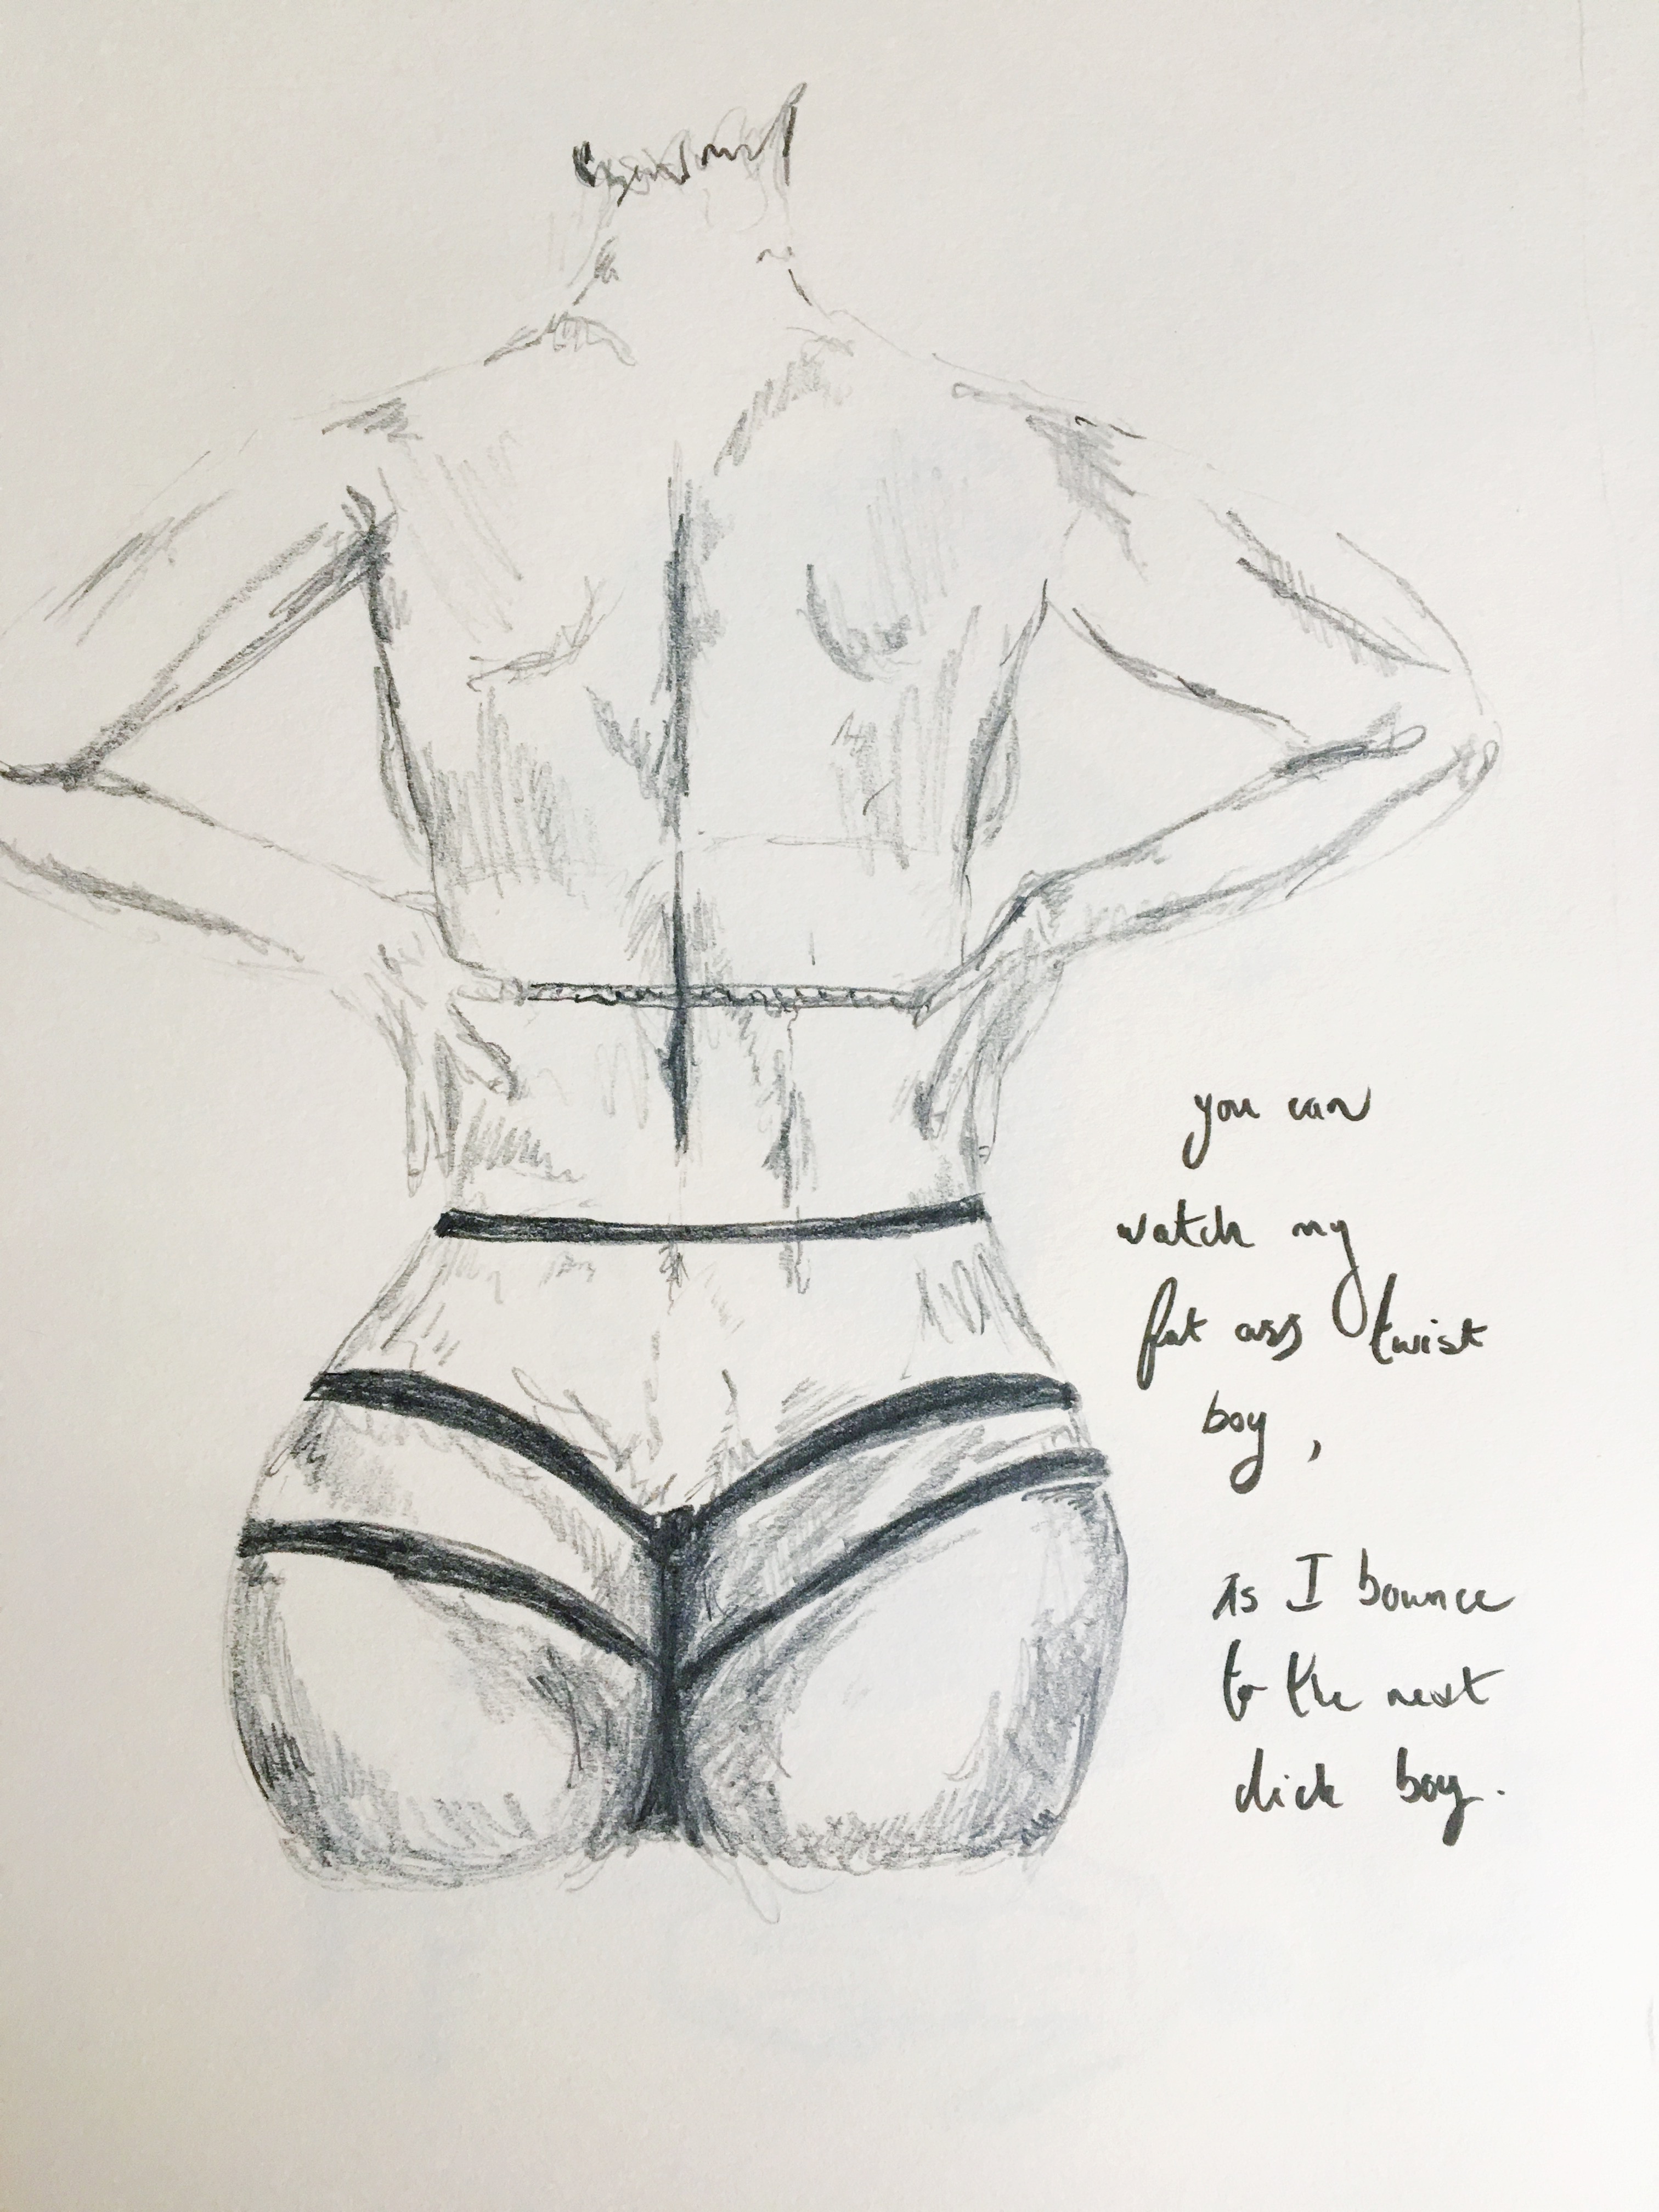 you can
watch my
fat ass twist
boy,
as I bounce
to the next
dick boy.